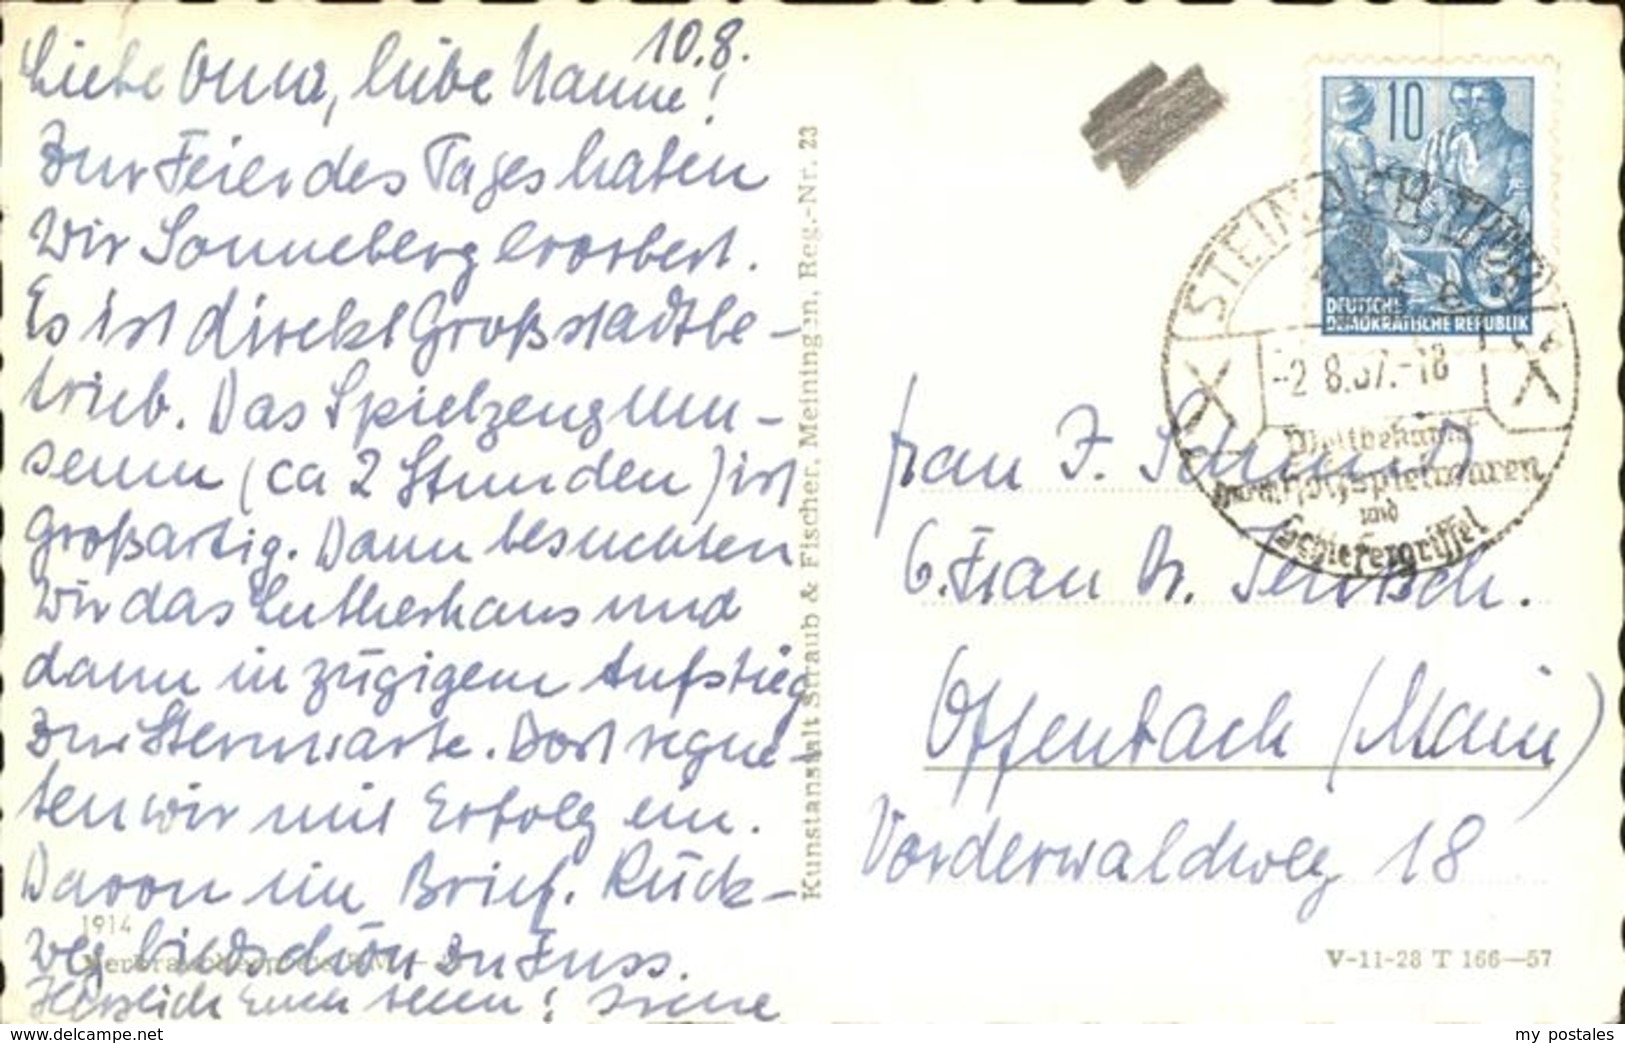 10.8.
Liebe Oma, liebe Nanne!
Zur Feier des Tages haben
wir Sonneberg erorbert.
Es ist direkt Großstadtbe-
trieb. Das Spielzeugmu-
seum (ca 2 Stunden) ist
Großartig. Dann besuchten
wir das Lutherhaus und
dann in zügigem Aufstieg
zur Sternwarte. Dort regne-
ten wir mit Erfolg ein.
Davon im Brief. Rück-
weg bildschön zu Fuss.
Herzlich Euch allen! Irene
1914
Kunstanstalt Straub & Fischer, Meiningen, Reg.-Nr. 23
10
DEUTSCHE
DEMOKRATISCHE REPUBLIK
STEINACH THÜR
-2 8.57.-18
Weltbekannt
Holzspielwaren
und
Schiefergriffel
Frau J. Schmidt
b. Frau Dr.
Offenbach (Main)
Vorderwaldweg 18
V-11-28 T 166—57
www.delcampe.net
my_postales